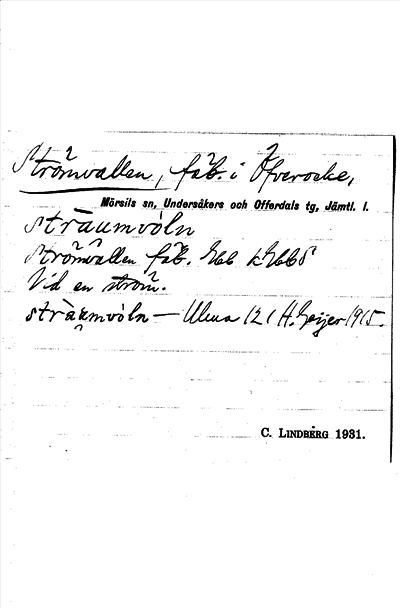 Strömvallen, fäb. i Öfverocke,
Mörsils sn, Undersåkers och Offerdals tg, Jämtl. l.
sträumvöln
Strömvallen fäb.
Vid en ström.
sträumvöln — Ulma 121 H. Geijer 1915.
C. LINDBERG 1931.